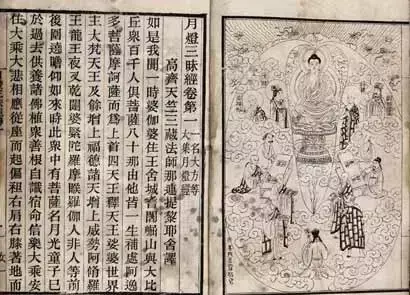 月燈三昧經卷第一
一名大方等
大集月燈經
高齊天竺三藏法師那連提黎耶舍譯
如是我聞一時婆伽婆住王舍城耆闍崛山與大比
丘衆百千人俱菩薩八十那由他皆一生補處阿逸
多菩薩摩訶薩而爲上首四天王釋天王娑婆世界
主大梵天王及餘增上福德諸天增上威勢阿脩羅
王龍王夜叉乾闥婆緊陀羅摩睺羅伽人非人等前
後圍遶瞻仰如來時此衆中有菩薩名月光童子已
於過去供養諸佛植衆善根自識宿命信樂大乘安
住大乘大悲相應從座而起偏袒右肩右膝著地而